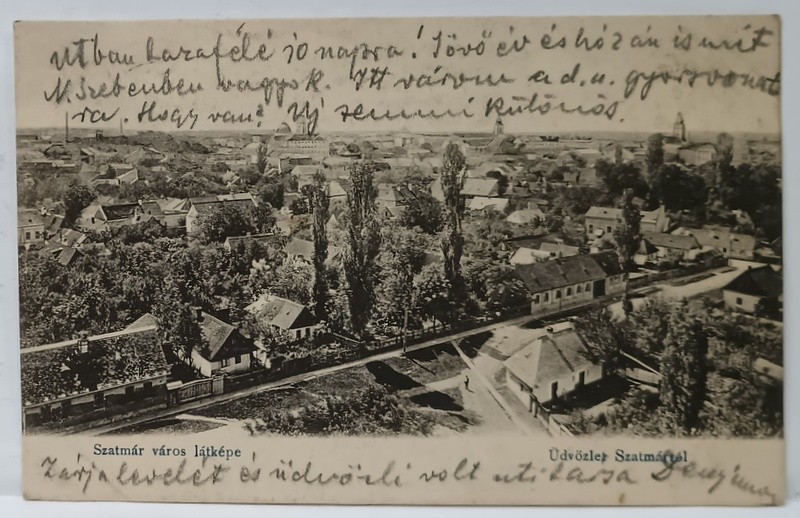 Utban hazafelé 10 napra! Jövő év és hózán ismét
N. Szebenben vagyok. Itt várom a d. u. gyorsvonat
ra. Hogy van? Uj semmi különös.
Szatmár város látképe
Üdvözlet Szatmárról
Zárja levelét és üdvözli volt utitársa